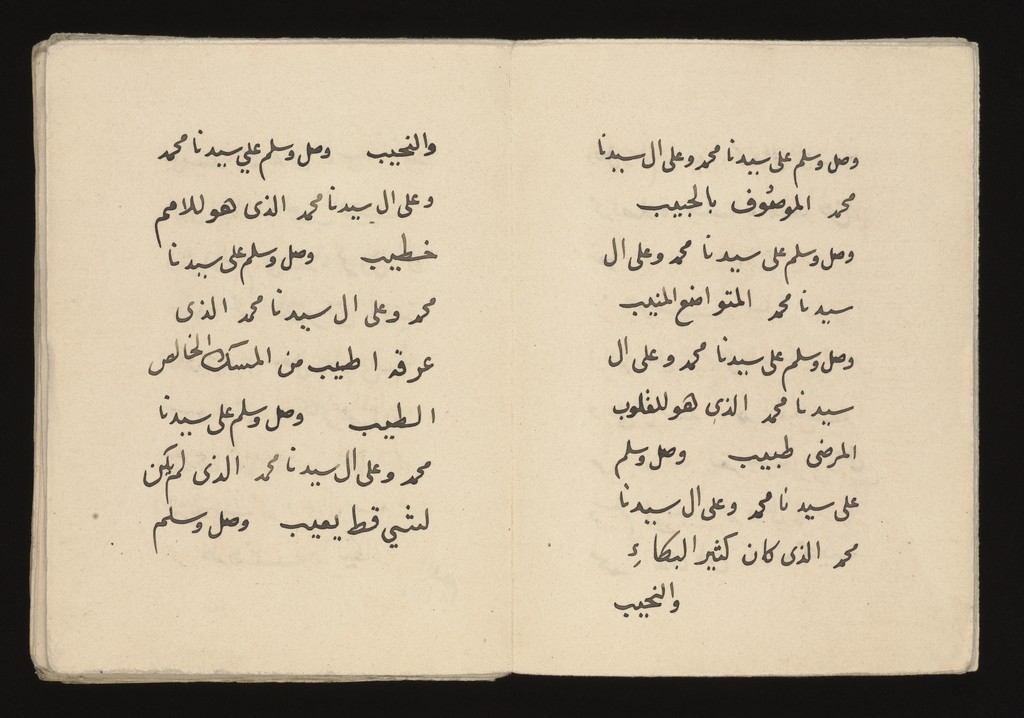 وصل وسلم على سيدنا محمد وعلى ال سيدنا
محمد الموصوف بالحبيب
وصل وسلم على سيدنا محمد وعلى ال
سيدنا محمد المتواضع المنيب
وصل وسلم على سيدنا محمد وعلى ال
سيدنا محمد الذي هو للقلوب
المرضى طبيب وصل وسلم
على سيدنا محمد وعلى ال سيدنا
محمد الذى كان كثير البكاءِ
والنحيب
والنحيب وصل وسلم علي سيدنا محمد
وعلى ال سيدنا محمد الذى هو للامم
خطيب وصل وسلم على سيدنا
محمد وعلى ال سيدنا محمد الذى
عرقه اطيب من المسك الخالص
الطيب وصل وسلم على سيدنا
محمد وعلى ال سيدنا محمد الذى لم يكن
لشي قط يعيب وصل وسلم